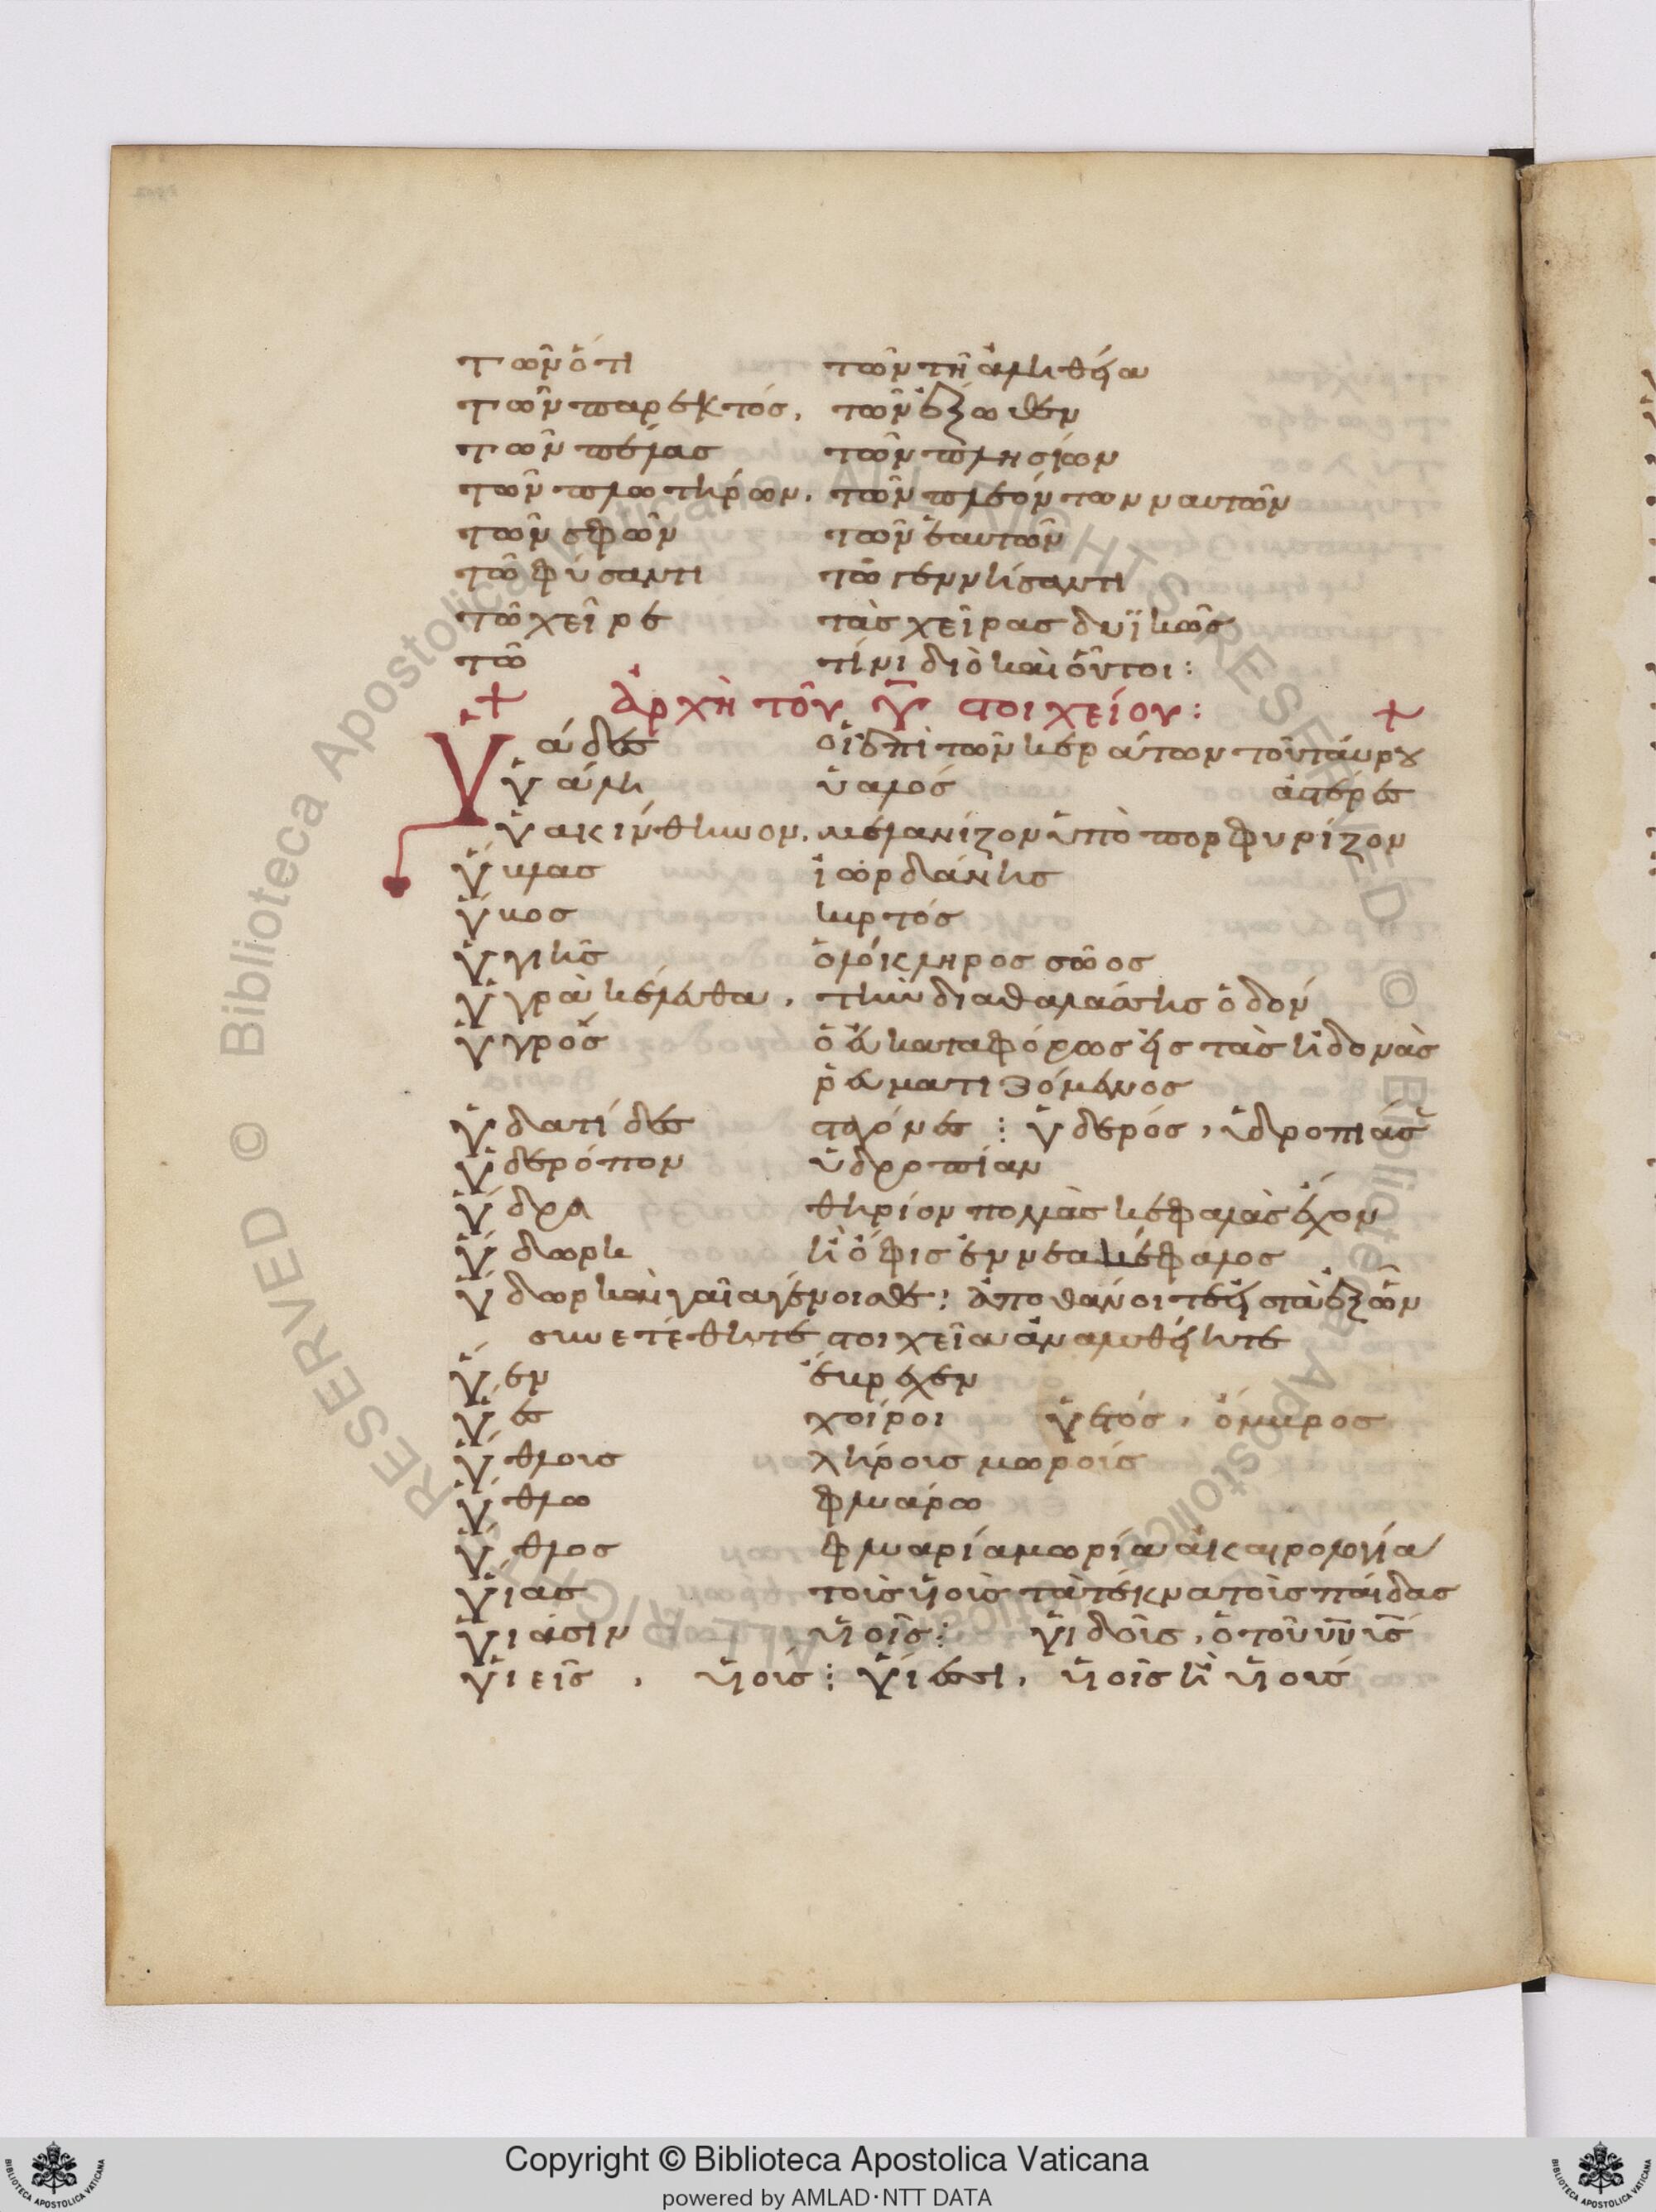 τῶν ὅτι τῶν τῆ ἀληθεία
τῶν παρεκτός, τῶν ἔξωθεν
τῶν πέλας τῶν πλησίον
τῶν πλωτήρων, τῶν πλεόντων ναυτῶν
τῶν σφῶν τῶν ἑαυτῶν
τῶ φύσαντι τῶ γεννήσαντι
τῶ χεῖρε τὰς χεῖρας δυϊκῶς
τῶ τίνι διὸ καὶ οὗτοι:
+ ἀρχὴ τοῦ Υ στοιχείου: +
Υάδες οἱ ἐπὶ τῶν κεράτων τοῦ ταύρου
ὑάλη ὑαλός ἀστέρες
ὑακίνθινον, μελανίζον ὑποπορφυρίζον
ὕμας ἰορδάνης
ὕκος κυρτός
ὑγιὴς ὁλόκληρος σῶος
ὑγρὰ κέλευθα, τὴν διὰ θαλάσσης ὁδόν
ὑγρός ὁ εὐκαταφόρως εἰς τὰς ἡδονὰς
ῥευματιζόμενος
ὑδατίδες σταγόνες: ὑδερός, ὑδροπιάς
ὑδερόπον ὑδροπίαν
ὕδρα θηρίον πολλὰς κεφαλὰς ἔχον
ὕδωρη ἢ ὄφις ἐννεακέφαλος
ὕδωρ καὶ γαῖα γένοισθε: ἀποθάνοιτε εἰς τὰ ἐξ ὧν
συνετέθητε στοιχεῖα ἀναλυθείητε
ὗεν ἔβρεχεν
ὕες χοίροι ὑετός, ὄμβρος
ὕθλοις λήροις μωροίς
ὕθλω φλυάρω
ὕθλος φλυαρία μωρία ἀκαιρολογία
ὑίας τοὺς υἱοὺς τὰ τέκνα τοὺς παίδας
ὑιάσιν υἱοῖς: ὑιδοῖς, ὁ τοῦ υυ ις
ὑιεῖς, υἱοίς: ὑιέσι, υἱοῖς ἢ υἱούς
Copyright © Biblioteca Apostolica Vaticana
powered by AMLAD·NTT DATA